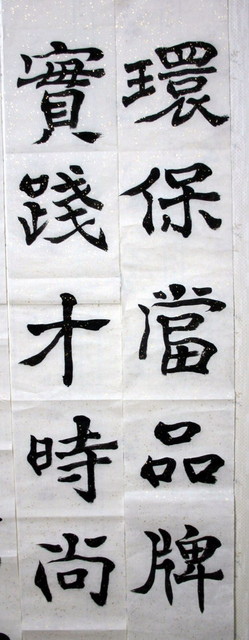 環保當品牌
實踐才時尚